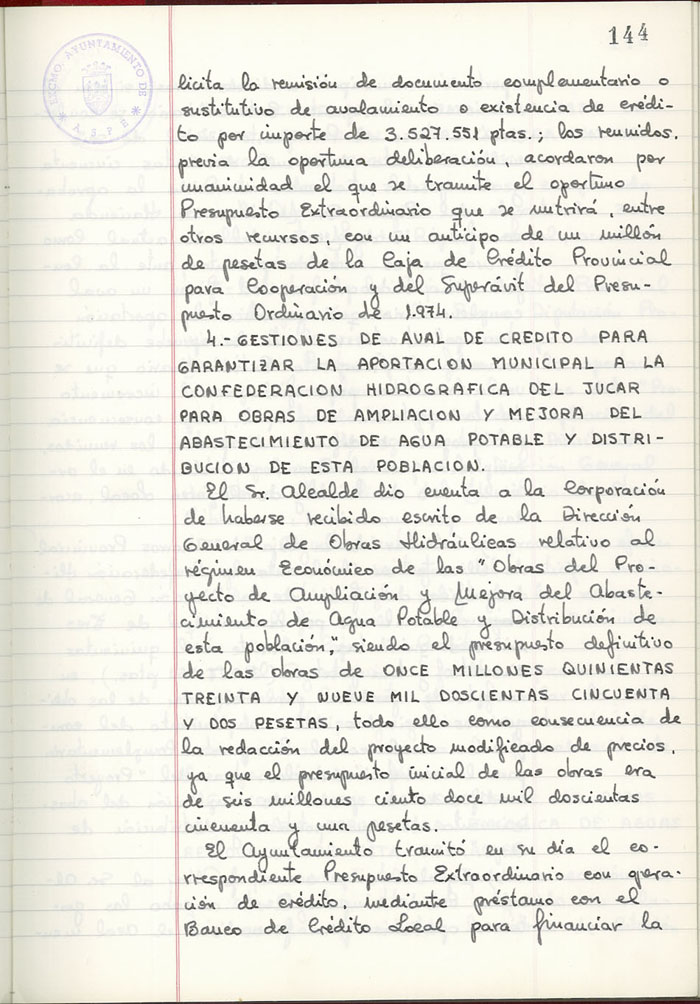 144
EXCMO. AYUNTAMIENTO DE
* A S P E *
licita la remisión de documento complementario o
sustitutivo de avalamiento o existencia de crédi-
to por importe de 3.527.551 ptas.; los reunidos,
previa la oportuna deliberación, acordaron por
unanimidad el que se tramite el oportuno
Presupuesto Extraordinario que se nutrirá, entre
otros recursos, con un anticipo de un millón
de pesetas de la Caja de Crédito Provincial
para Cooperación y del Superávit del Presu-
puesto Ordinario de 1.974.
4.- GESTIONES DE AVAL DE CREDITO PARA
GARANTIZAR LA APORTACION MUNICIPAL A LA
CONFEDERACION HIDROGRAFICA DEL JUCAR
PARA OBRAS DE AMPLIACION Y MEJORA DEL
ABASTECIMIENTO DE AGUA POTABLE Y DISTRI-
BUCION DE ESTA POBLACION.
El Sr. Alcalde dio cuenta a la Corporación
de haberse recibido escrito de la Dirección
General de Obras Hidráulicas relativo al
régimen Económico de las "Obras del Pro-
yecto de Ampliación y Mejora del Abaste-
cimiento de Agua Potable y Distribución de
esta población," siendo el presupuesto definitivo
de las obras de ONCE MILLONES QUINIENTAS
TREINTA Y NUEVE MIL DOSCIENTAS CINCUENTA
Y DOS PESETAS, todo ello como consecuencia de
la redacción del proyecto modificado de precios,
ya que el presupuesto inicial de las obras era
de seis millones ciento doce mil doscientas
cincuenta y una pesetas.
El Ayuntamiento tramitó en su día el co-
rrespondiente Presupuesto Extraordinario con opera-
ción de crédito, mediante préstamo con el
Banco de Crédito Local para financiar la